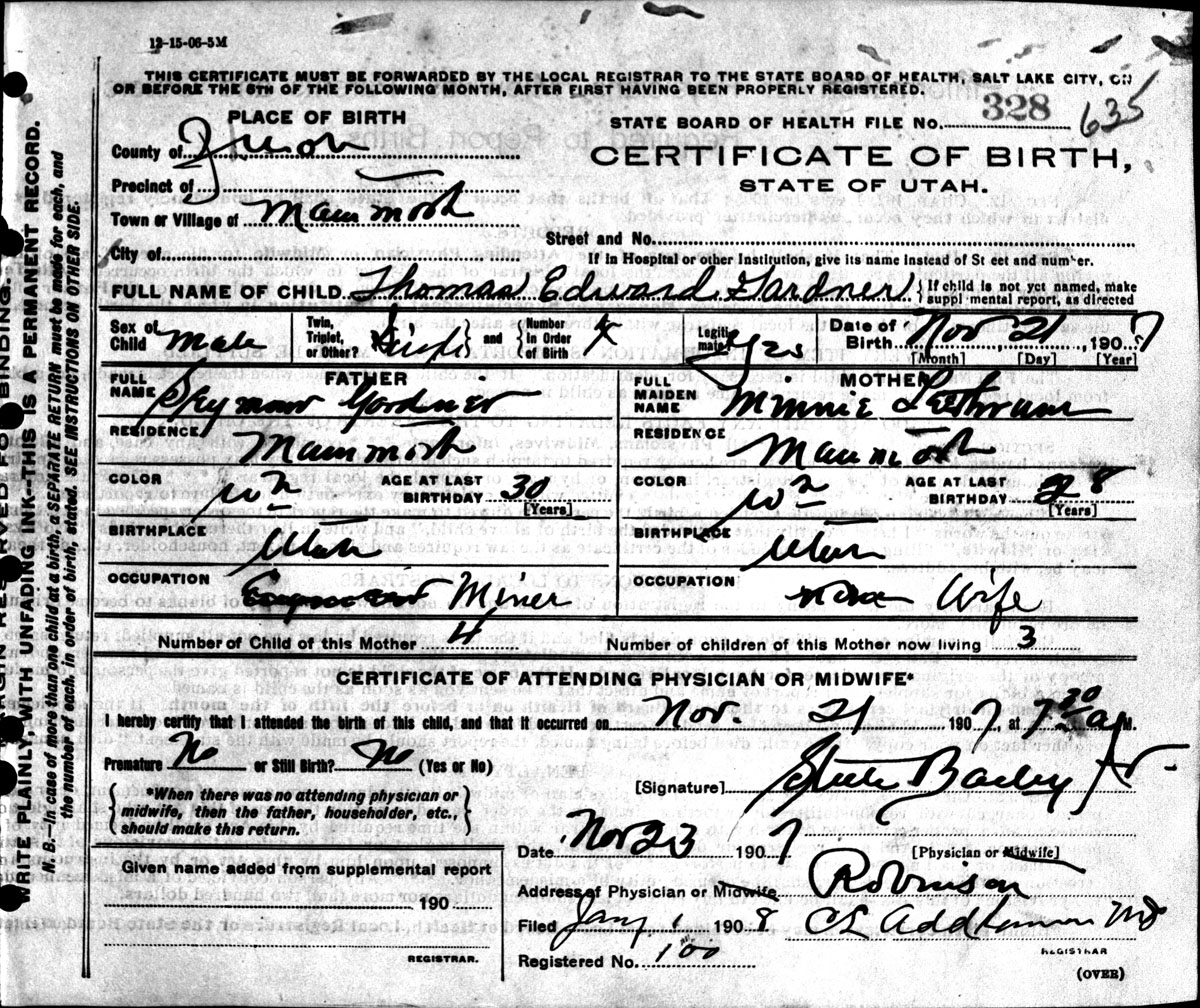 12-15-06-5M
THIS CERTIFICATE MUST BE FORWARDED BY THE LOCAL REGISTRAR TO THE STATE BOARD OF HEALTH, SALT LAKE CITY, ON
OR BEFORE THE 5TH OF THE FOLLOWING MONTH, AFTER FIRST HAVING BEEN PROPERLY REGISTERED.
PLACE OF BIRTH
STATE BOARD OF HEALTH FILE NO. 328 635
County of
CERTIFICATE OF BIRTH,
STATE OF UTAH.
Precinct of
Town or Village of Mammoth
Street and No.
City of
If in Hospital or other Institution, give its name instead of Street and number.
FULL NAME OF CHILD Thomas Edward Gardner { If child is not yet named, make supplemental report, as directed
Sex of Child Male Twin, Triplet, or Other? Single and Number in Order of Birth Legitimate yes Date of Birth Nov, 21, 1907
[Month] [Day] [Year]
FATHER
FULL NAME Seymour Gardner
RESIDENCE Mammoth
COLOR AGE AT LAST BIRTHDAY 30
[Years]
BIRTHPLACE Utah
OCCUPATION Miner
MOTHER
FULL MAIDEN NAME Minnie
RESIDENCE Mammoth
COLOR AGE AT LAST BIRTHDAY 28
[Years]
BIRTHPLACE Utah
OCCUPATION Wife
Number of Child of this Mother 4 Number of children of this Mother now living 3
CERTIFICATE OF ATTENDING PHYSICIAN OR MIDWIFE*
I hereby certify that I attended the birth of this child, and that it occurred on Nov. 21 1907, at 7 30 a M.
Premature No or Still Birth? No (Yes or No)
[Signature] Steele Bailey Jr.
{ *When there was no attending physician or midwife, then the father, householder, etc., should make this return. }
Date Nov 23 1907
[Physician or Midwife]
Given name added from supplemental report
190
REGISTRAR.
Address of Physician or Midwife Robinson
Filed Jany 1 1908
REGISTRAR
Registered No. 100
(OVER)
WRITE PLAINLY, WITH UNFADING INK—THIS IS A PERMANENT RECORD.
N. B.—In case of more than one child at a birth, a SEPARATE RETURN must be made for each, and
the number of each, in order of birth, stated. SEE INSTRUCTIONS ON OTHER SIDE.